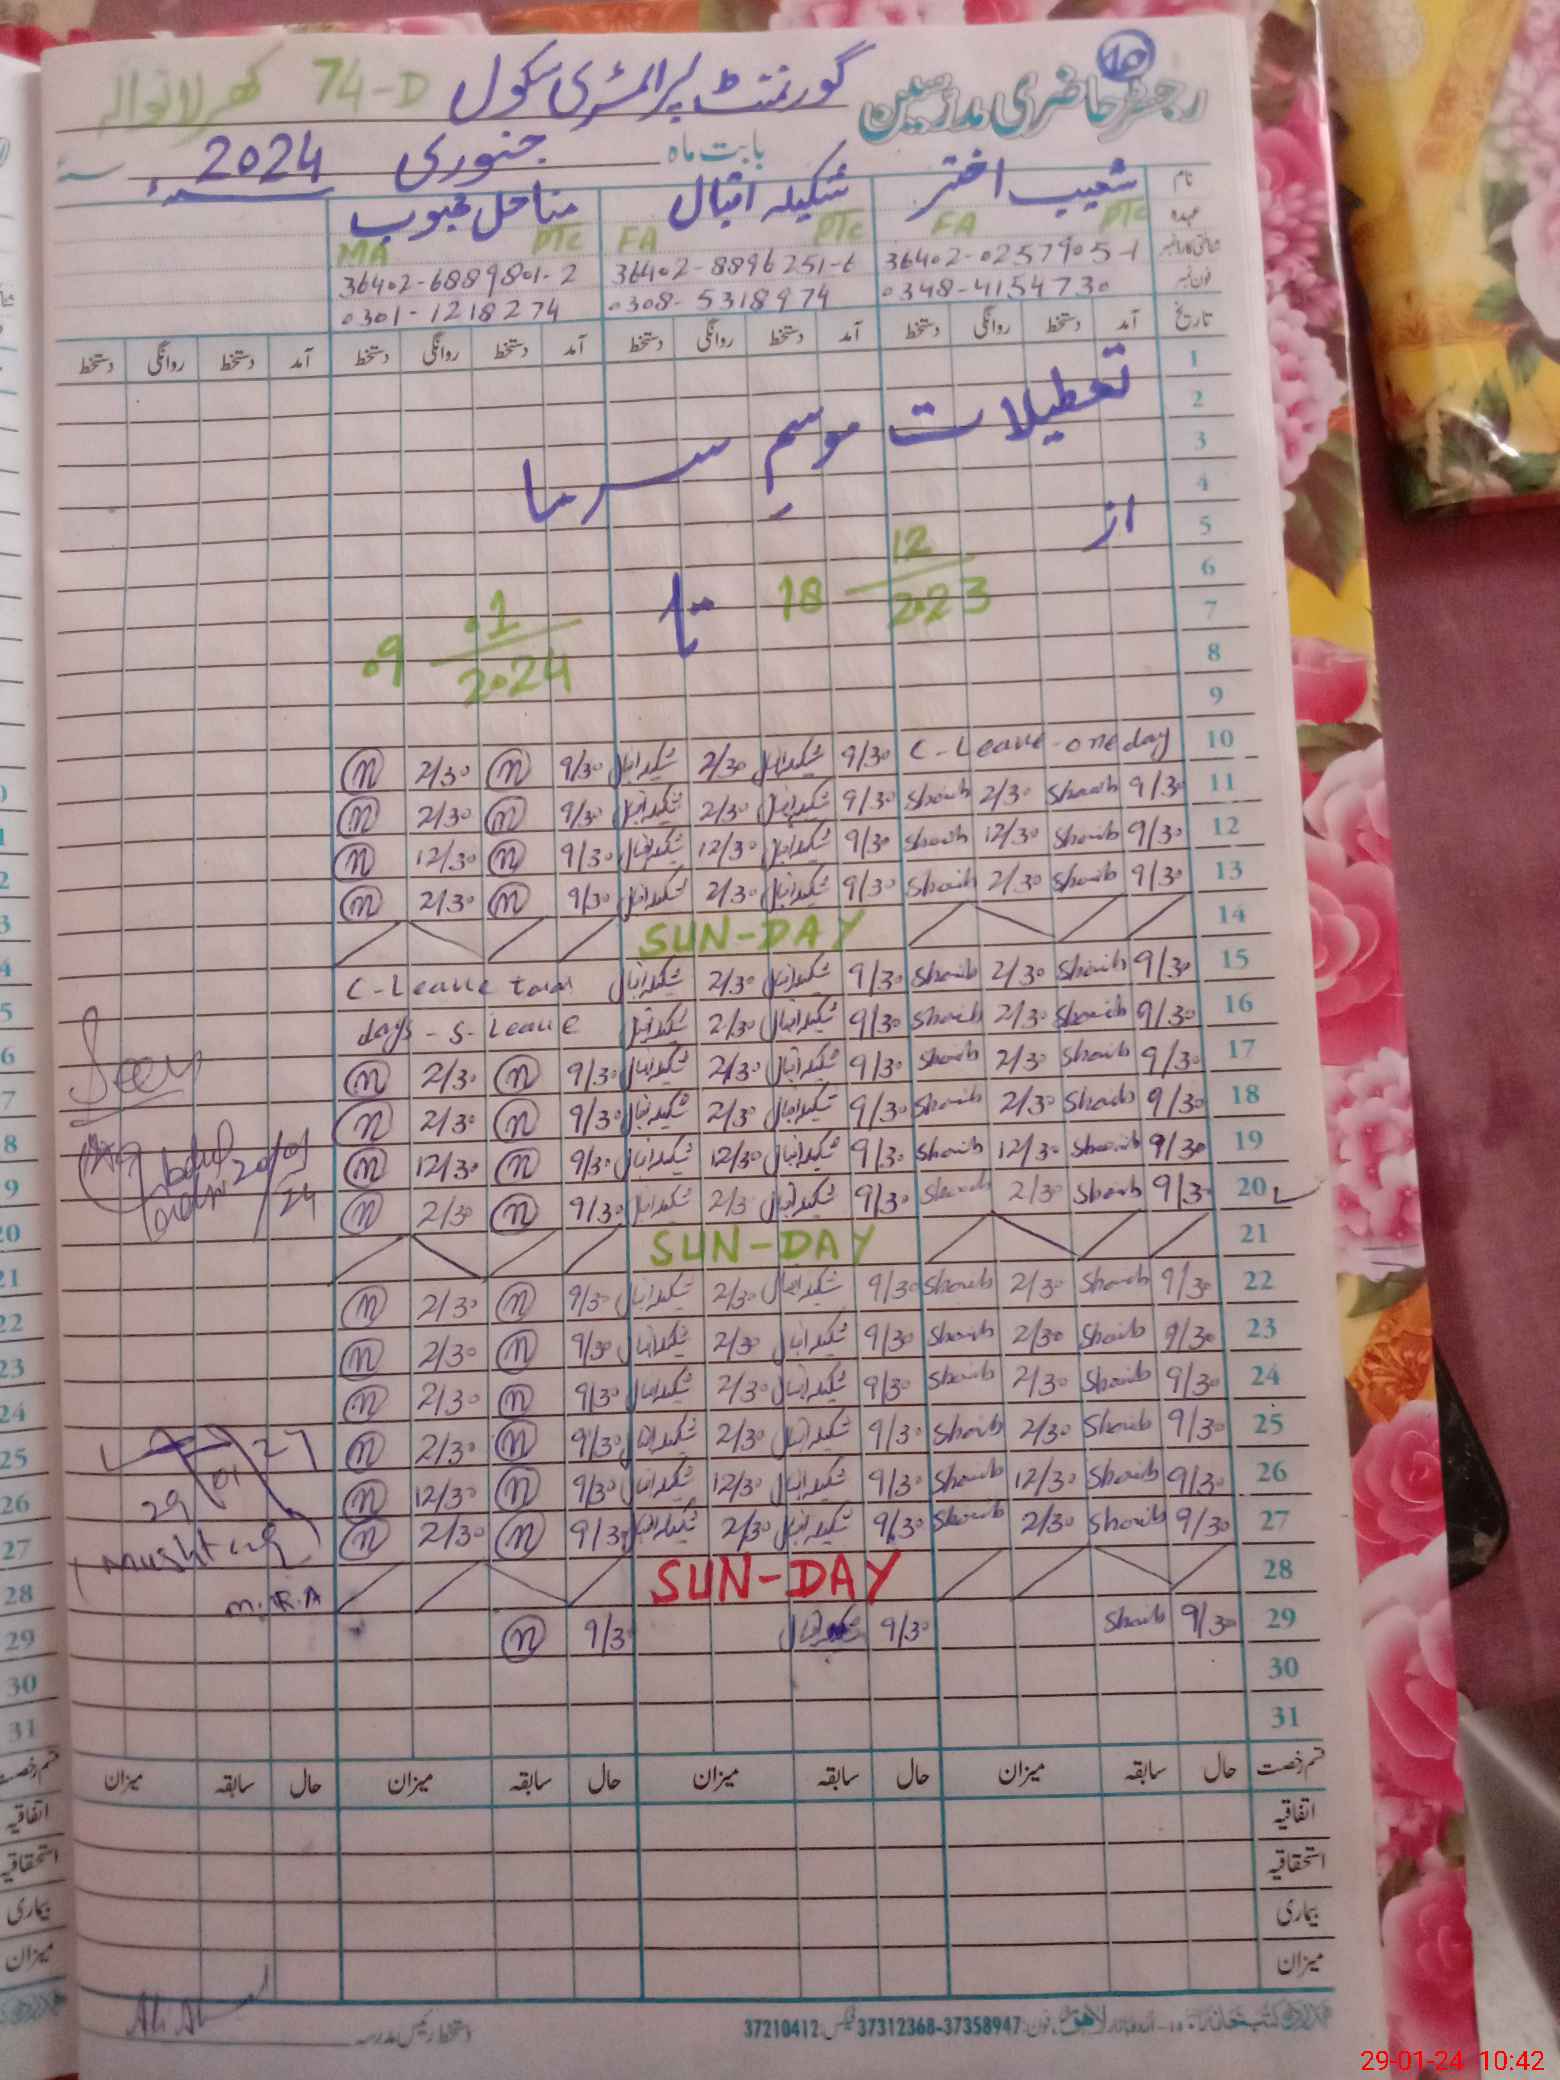 10
رجسٹر حاضری مدرسین گورنمنٹ پرائمری سکول 74-D کھرلانوالہ
بابت ماہ جنوری 2024ء
نام شعیب اختر شکیلہ اقبال مناحل محبوب
عہدہ PTC FA PTC FA PTC MA
شناختی کارڈ نمبر 36402-0257905-1 36402-8896251-6 36402-6889801-2
فون نمبر 0348-4154730 0308-5318974 0301-1218274
تاریخ آمد دستخط روانگی دستخط آمد دستخط روانگی دستخط آمد دستخط روانگی دستخط آمد دستخط روانگی دستخط
1
2 تعطیلات موسمِ سرما
3
4
5 از
6 18 12/2023 تا 09 01/2024
7
8
9
10 C-Leave-one day 9/30 شکیلہ اقبال 2/30 شکیلہ اقبال 9/30 n 2/30 n
11 9/30 Shoaib 2/30 Shoaib 9/30 شکیلہ اقبال 2/30 شکیلہ اقبال 9/30 n 2/30 n
12 9/30 Shoaib 12/30 Shoaib 9/30 شکیلہ اقبال 12/30 شکیلہ اقبال 9/30 n 12/30 n
13 9/30 Shoaib 2/30 Shoaib 9/30 شکیلہ اقبال 2/30 شکیلہ اقبال 9/30 n 2/30 n
14 SUN-DAY
15 9/30 Shoaib 2/30 Shoaib 9/30 شکیلہ اقبال 2/30 شکیلہ اقبال C-Leave
16 9/30 Shoaib 2/30 Shoaib 9/30 شکیلہ اقبال 2/30 شکیلہ اقبال days-S-Leave
17 9/30 Shoaib 2/30 Shoaib 9/30 شکیلہ اقبال 2/30 شکیلہ اقبال 9/30 n 2/30 n
18 9/30 Shoaib 2/30 Shoaib 9/30 شکیلہ اقبال 2/30 شکیلہ اقبال 9/30 n 2/30 n
19 9/30 Shoaib 12/30 Shoaib 9/30 شکیلہ اقبال 12/30 شکیلہ اقبال 9/30 n 12/30 n
20 9/30 Shoaib 2/30 Shoaib 9/30 شکیلہ اقبال 2/3 شکیلہ اقبال 9/30 n 2/30 n
21 SUN-DAY
22 9/30 Shoaib 2/30 Shoaib 9/30 شکیلہ اقبال 2/30 شکیلہ اقبال 9/30 n 2/30 n
23 9/30 Shoaib 2/30 Shoaib 9/30 شکیلہ اقبال 2/30 شکیلہ اقبال 9/30 n 2/30 n
24 9/30 Shoaib 2/30 Shoaib 9/30 شکیلہ اقبال 2/30 شکیلہ اقبال 9/30 n 2/30 n
25 9/30 Shoaib 2/30 Shoaib 9/30 شکیلہ اقبال 2/30 شکیلہ اقبال 9/30 n 2/30 n
26 9/30 Shoaib 12/30 Shoaib 9/30 شکیلہ اقبال 12/30 شکیلہ اقبال 9/30 n 12/30 n
27 9/30 Shoaib 2/30 Shoaib 9/30 شکیلہ اقبال 2/30 شکیلہ اقبال 9/30 n 2/30 n
28 SUN-DAY
29 9/30 Shoaib 9/30 شکیلہ اقبال 9/3 n
30
31
Seen
20/01/24
29/01
Mushtaq
M.R.A
قسم رخصت حال سابقہ میزان حال سابقہ میزان حال سابقہ میزان حال سابقہ میزان
اتفاقیہ
استحقاقیہ
بیماری
میزان
لاہور فون: 37358947-37312368 فیکس: 37210412
دستخط رئیس مدرسہ
29-01-24 10:42